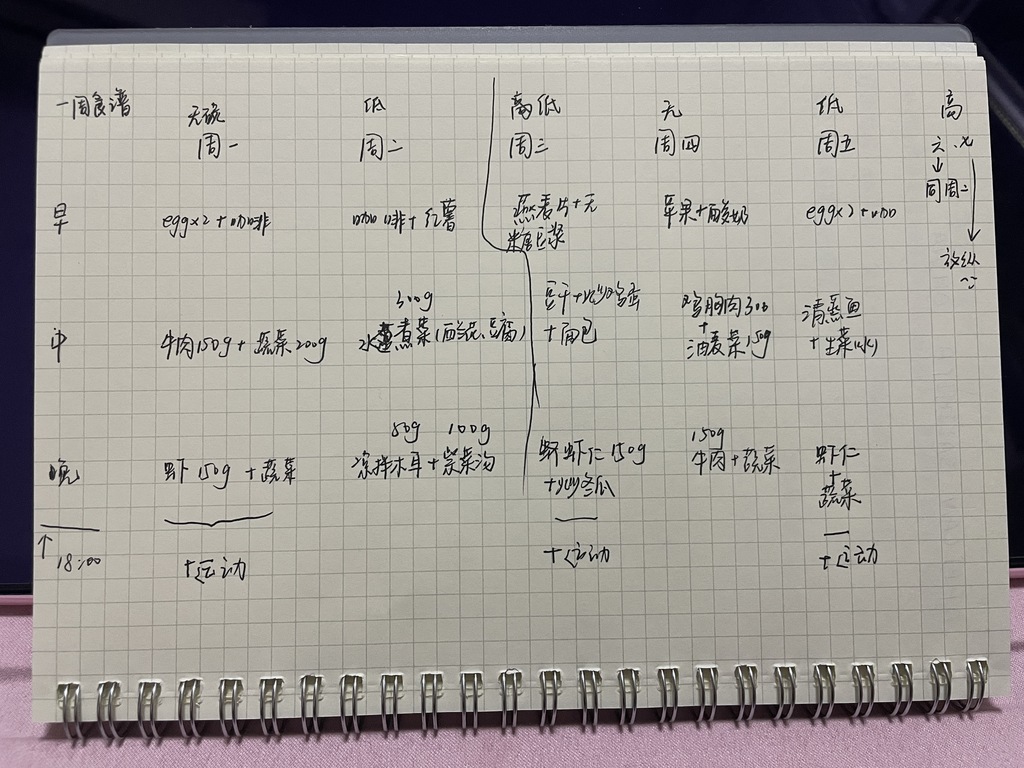 一周食谱
无碳 低 高低 无 低 高
周一 周二 周三 周四 周五 六.七
同周二
放纵
早 eggx2+咖啡 咖啡+红薯 燕麦片+无糖豆浆 苹果+酸奶 eggx2+咖
中 牛肉150g+蔬菜200g 300g 水煮菜(西兰花、豆腐) 豆干+炒鸡蛋+面包 鸡胸肉300+油麦菜150g 清蒸鱼+生菜(水)
晚 虾150g+蔬菜 80g 100g 凉拌木耳+紫菜汤 虾仁150g+炒冬瓜 150g 牛肉+蔬菜 虾仁+蔬菜
18:00 +运动 +运动 +运动